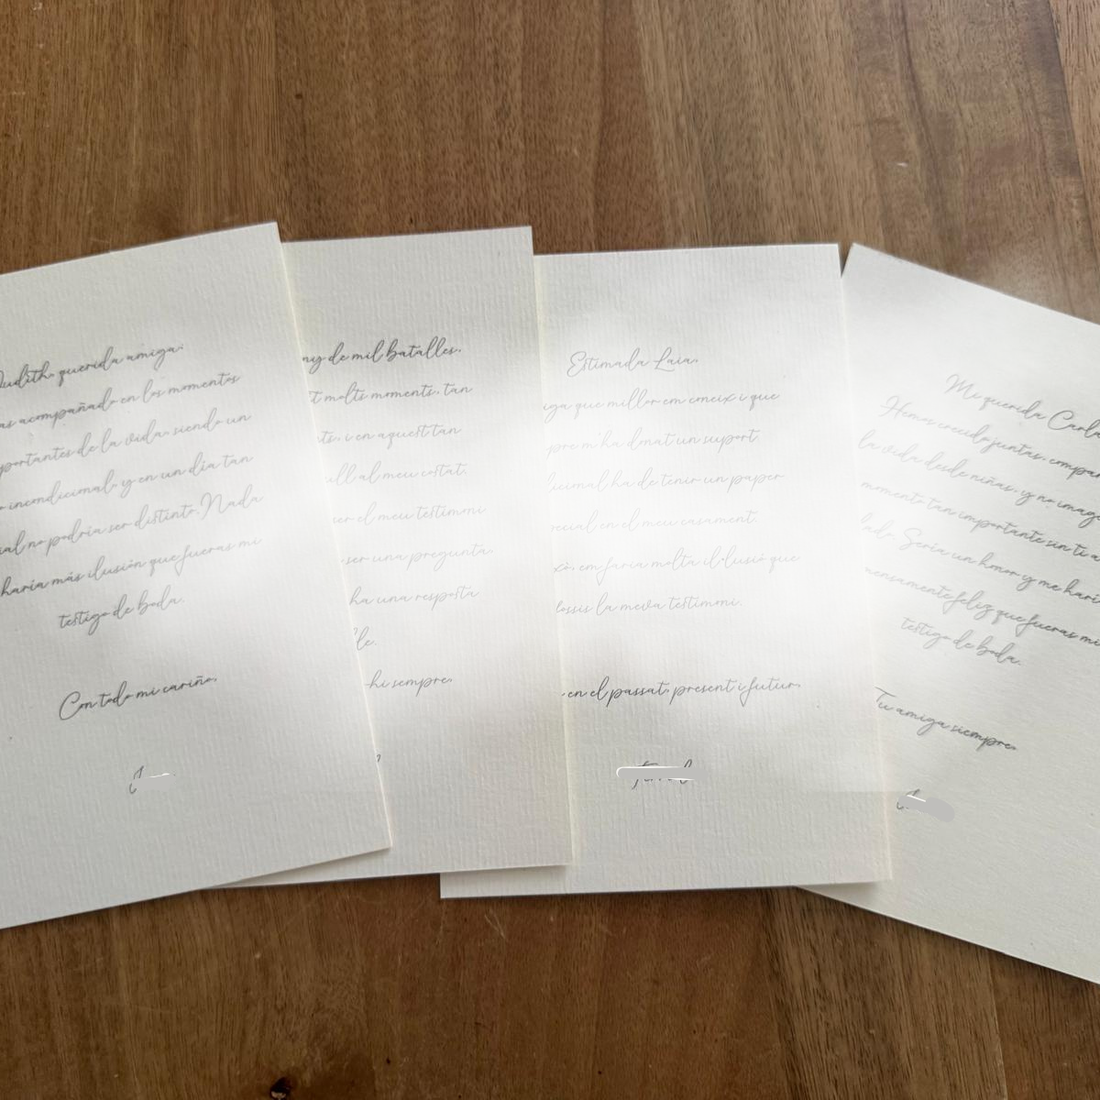 Judith, querida amiga:
as acompañado en los momentos
portantes de la vida, siendo un
incondicional, y en un día tan
ial no podría ser distinto. Nada
haría más ilusión que fueras mi
testigo de boda.
Con todo mi cariño,
ny de mil batalles,
t molts moments, tan
ts, i en aquest tan
ull al meu costat.
ser el meu testimoni
ser una pregunta
ha una resposta
le.
hi sempre,
Estimada Laia,
iga que millor em coneix i que
pre m'ha donat un suport
dicional ha de tenir un paper
ecial en el meu casament.
xò, em faria molta il·lusió que
fossis la meva testimoni.
en el passat, present i futur,
Mi querida Carla
Hemos crecido juntas, compar
la vida desde niñas, y no imag
momento tan importante sin ti a
lado. Sería un honor y me harí
mensamente feliz que fueras mi
testigo de boda.
Tu amiga siempre,